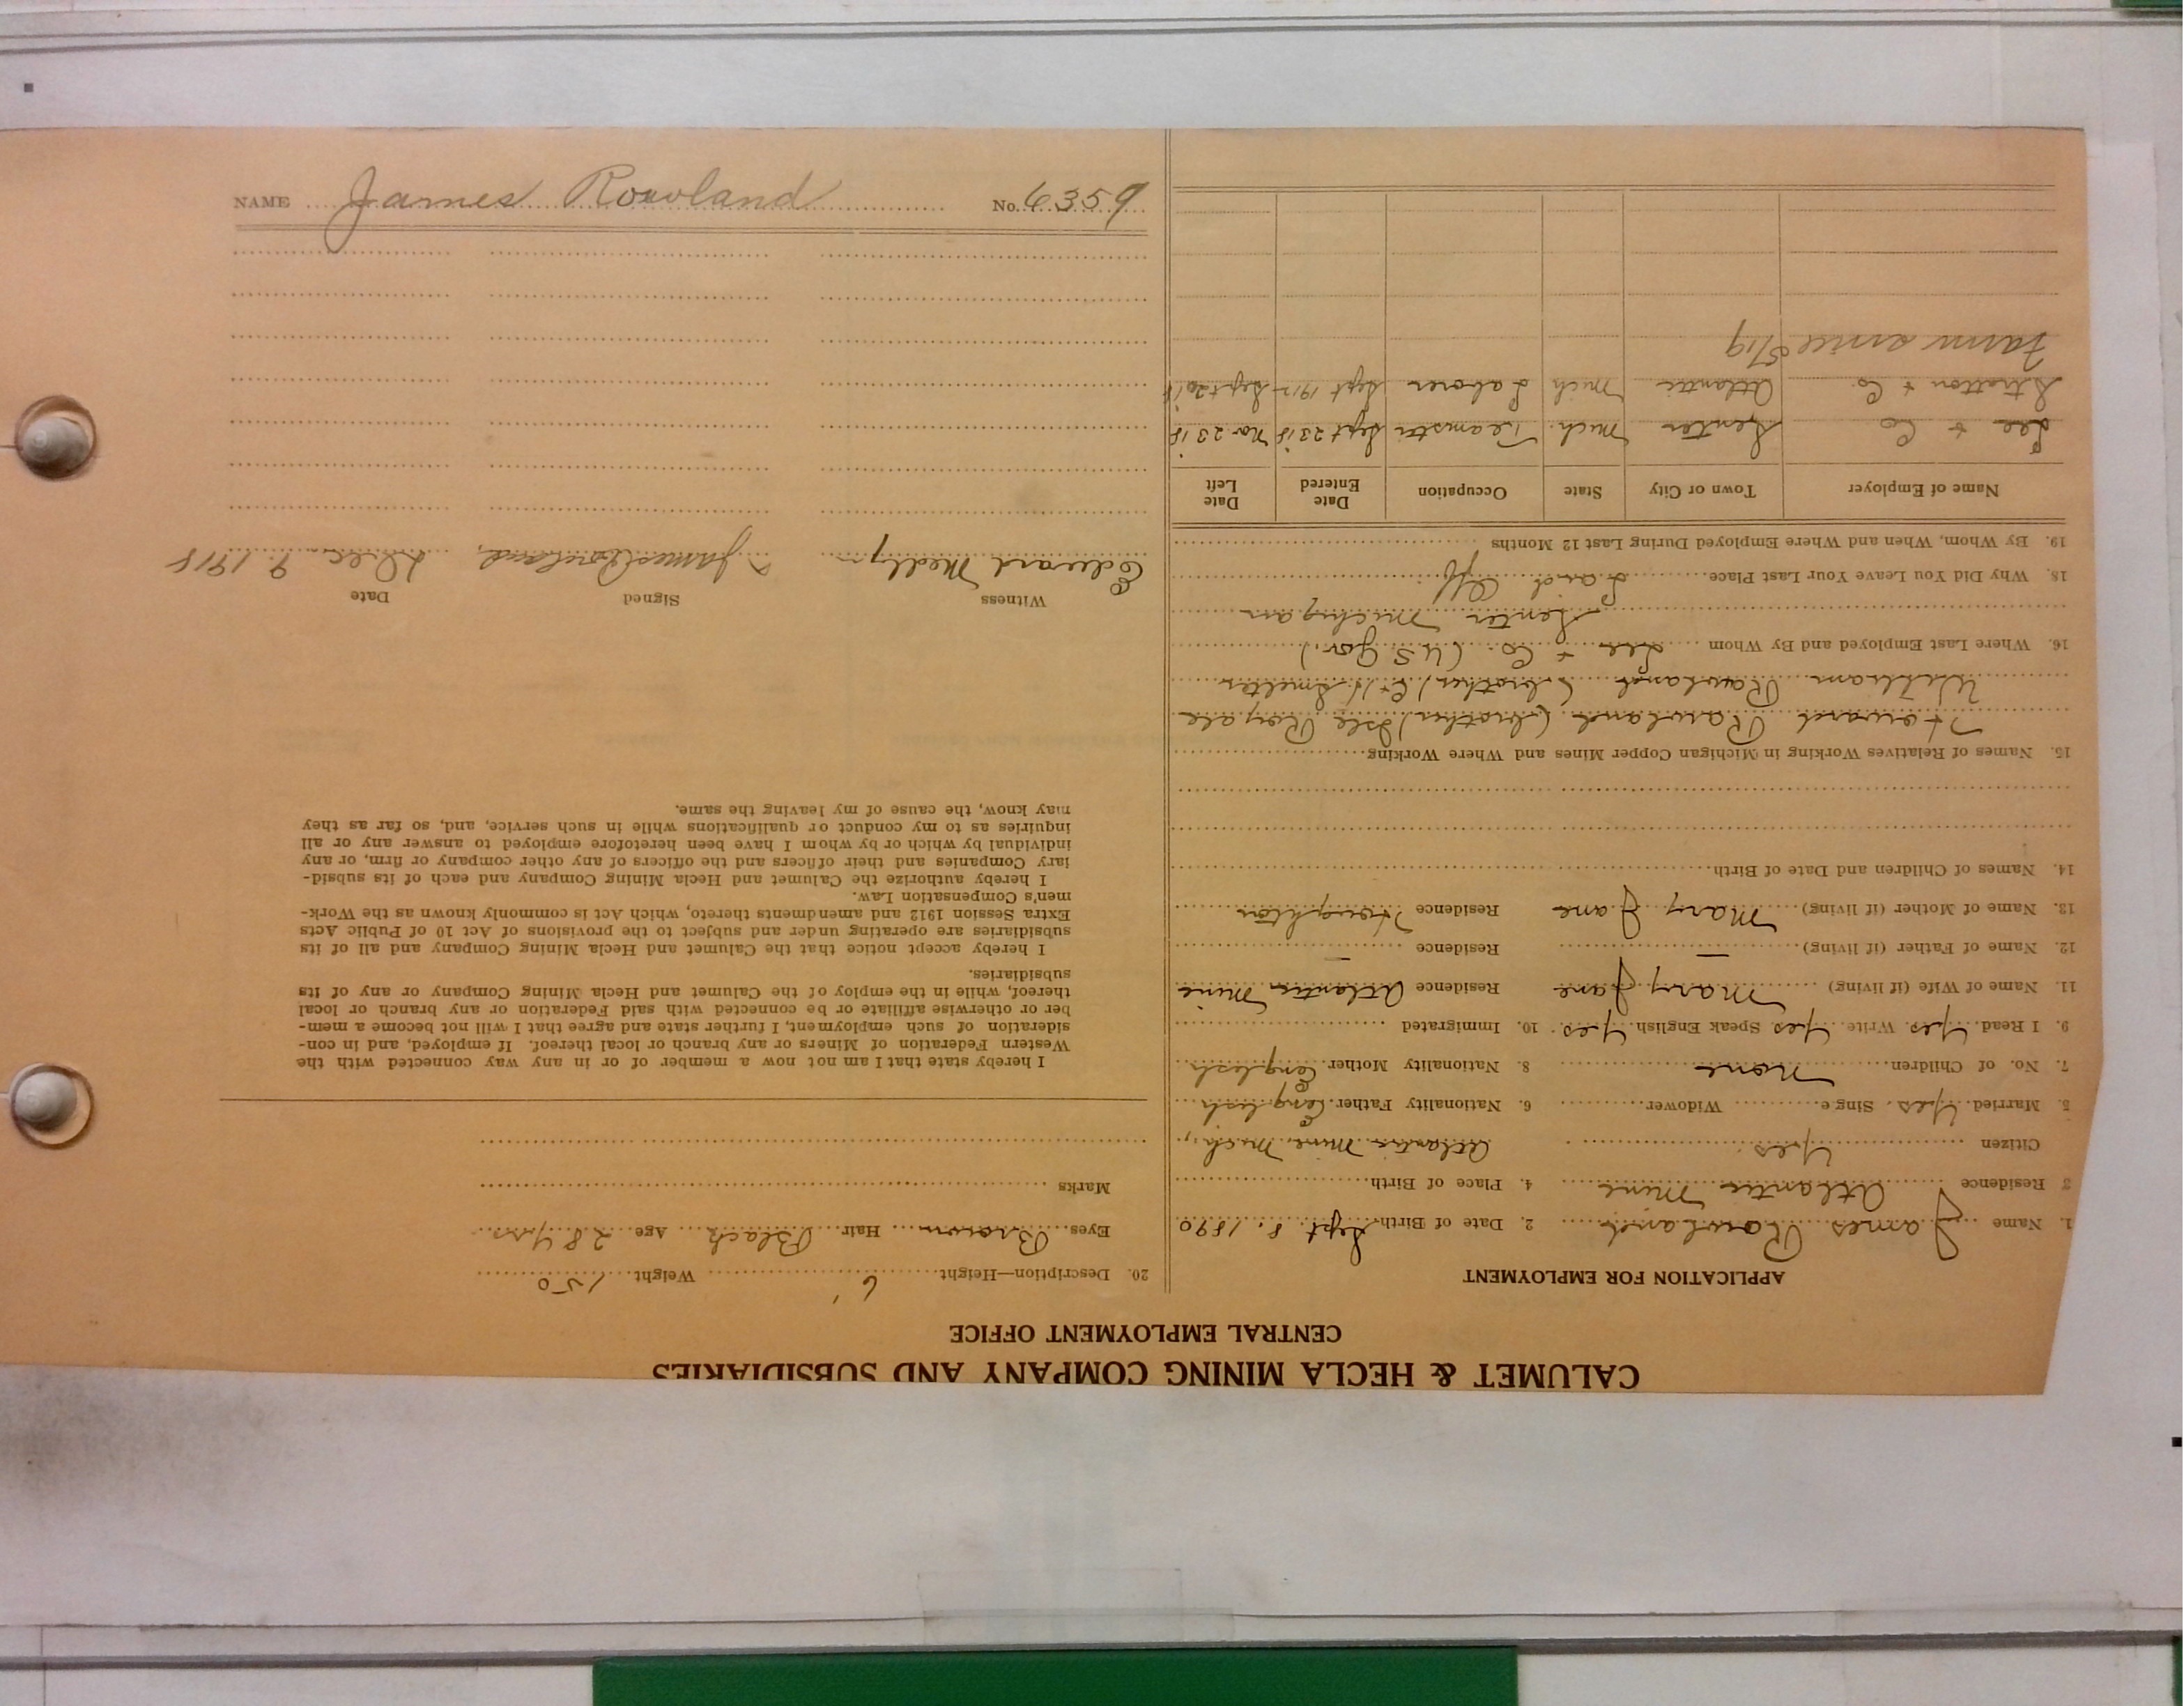 CALUMET & HECLA MINING COMPANY AND SUBSIDIARIES
CENTRAL EMPLOYMENT OFFICE
APPLICATION FOR EMPLOYMENT
1. Name James Rowland 2. Date of Birth Sept 8. 1890
3 Residence Atlantic Mine 4. Place of Birth
Citizen Yes Atlantic Mine, Mich,
5. Married Yes. Single Widower 6. Nationality Father English
7. No. of Children None 8. Nationality Mother English
9. I Read Yes Write Yes Speak English Yes 10. Immigrated
11. Name of Wife (if living) Mary Jane Residence Atlantic Mine
12. Name of Father (if living) — Residence —
13. Name of Mother (if living) Mary Jane Residence Houghton
14. Names of Children and Date of Birth
15. Names of Relatives Working in Michigan Copper Mines and Where Working
Howard Rowland (brother) Isle Royale
William Rowland (brother) C+H Smelter
16. Where Last Employed and By Whom Lee + Co. (U S Gov.)
Senter Michigan
18. Why Did You Leave Your Last Place Laid Off
19. By Whom, When and Where Employed During Last 12 Months
Name of Employer Town or City State Occupation Date Entered Date Left
Lee + Co Senter Mich. Teamster Sept 23 18 Nov 23 18
Stratton + Co. Atlantic Mich Laborer Sept 1917 Sept 20 18
Farm since 5/19
20. Description—Height 6' Weight 150
Eyes Brown Hair Black Age 28 Yrs.
Marks
I hereby state that I am not now a member of or in any way connected with the
Western Federation of Miners or any branch or local thereof. If employed, and in con-
sideration of such employment, I further state and agree that I will not become a mem-
ber or otherwise affiliate or be connected with said Federation or any branch or local
thereof, while in the employ of the Calumet and Hecla Mining Company or any of its
subsidiaries.
I hereby accept notice that the Calumet and Hecla Mining Company and all of its
subsidiaries are operating under and subject to the provisions of Act 10 of Public Acts
Extra Session 1912 and amendments thereto, which Act is commonly known as the Work-
men's Compensation Law.
I hereby authorize the Calumet and Hecla Mining Company and each of its subsid-
iary Companies and their officers and the officers of any other company or firm, or any
individual by which or by whom I have been heretofore employed to answer any or all
inquiries as to my conduct or qualifications while in such service, and, so far as they
may know, the cause of my leaving the same.
Witness Signed Date
Edward Medlyn James Rowland. Dec. 9. 1918
NAME James Rowland No. 6359